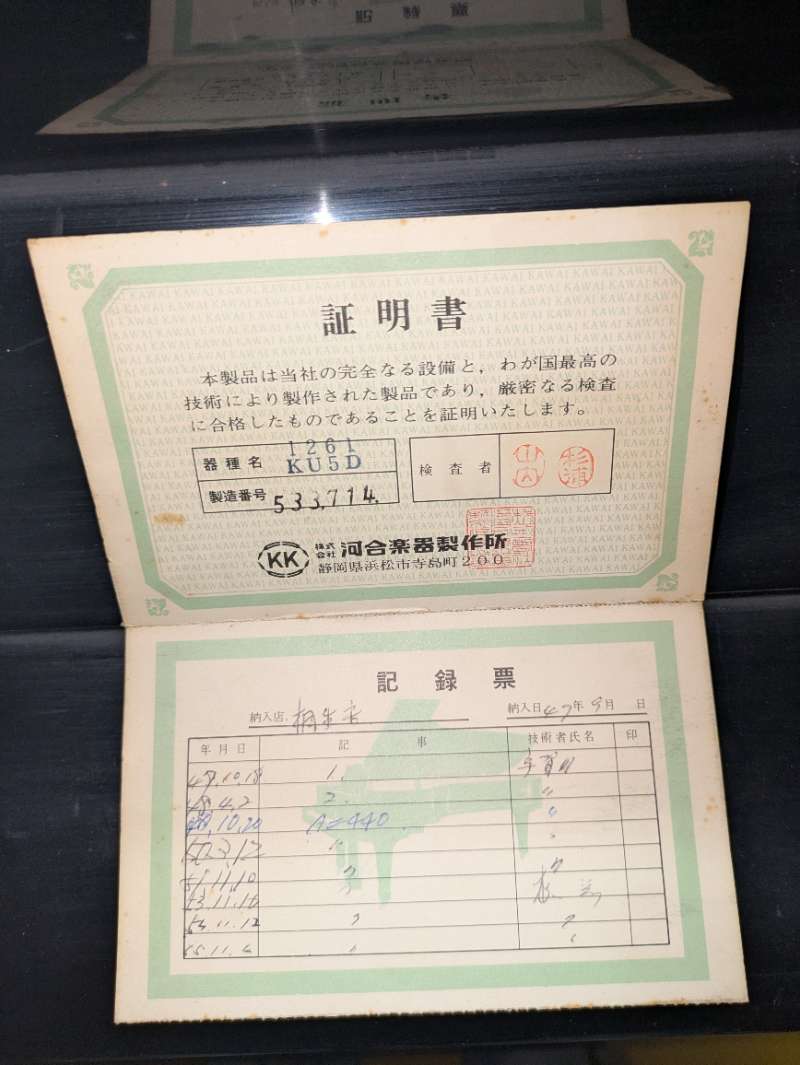 証明書
本製品は当社の完全なる設備と，わが国最高の
技術により製作された製品であり，厳密なる検査
に合格したものであることを証明いたします。
器種名 1261 KU5D
製造番号 533,714.
検査者 杉浦
KK 株式会社 河合楽器製作所
静岡県浜松市寺島町200
記録票
納入店 納入日 47年9月 日
年月日 記事 技術者氏名 印
47.10.18 1.
48.4.2 2. 〃
10.20 A=440 〃
50.3.12 〃 〃
51.11.10 〃 〃
53.11.16
54.11.12 〃 〃
55.11.6 〃 〃